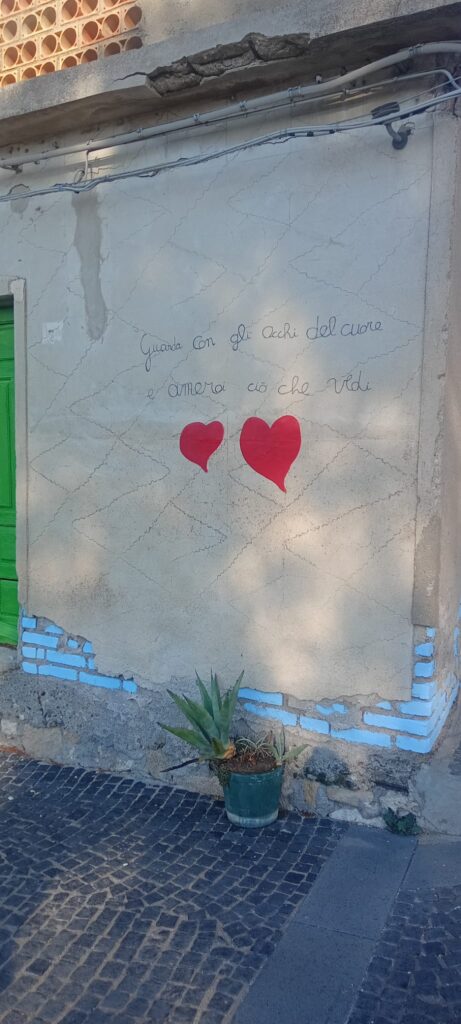 Guarda con gli occhi del cuore
e amerai ciò che vedi